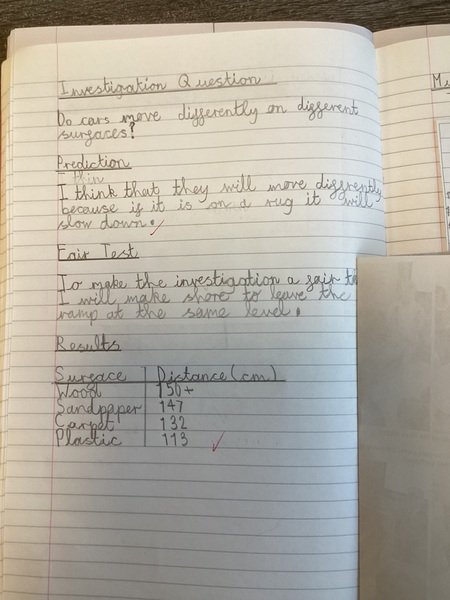 Investigation Question
Do cars move differently on different
surfaces?
Prediction
I thin
I think that they will move differently
because if it is on a rug it will
slow down.
Fair Test
To make the investigation a fair
I will make shore to leave the
ramp at the same level.
Results
Surface Distance (cm)
Wood 150+
Sandpaper 147
Carpet 132
Plastic 113